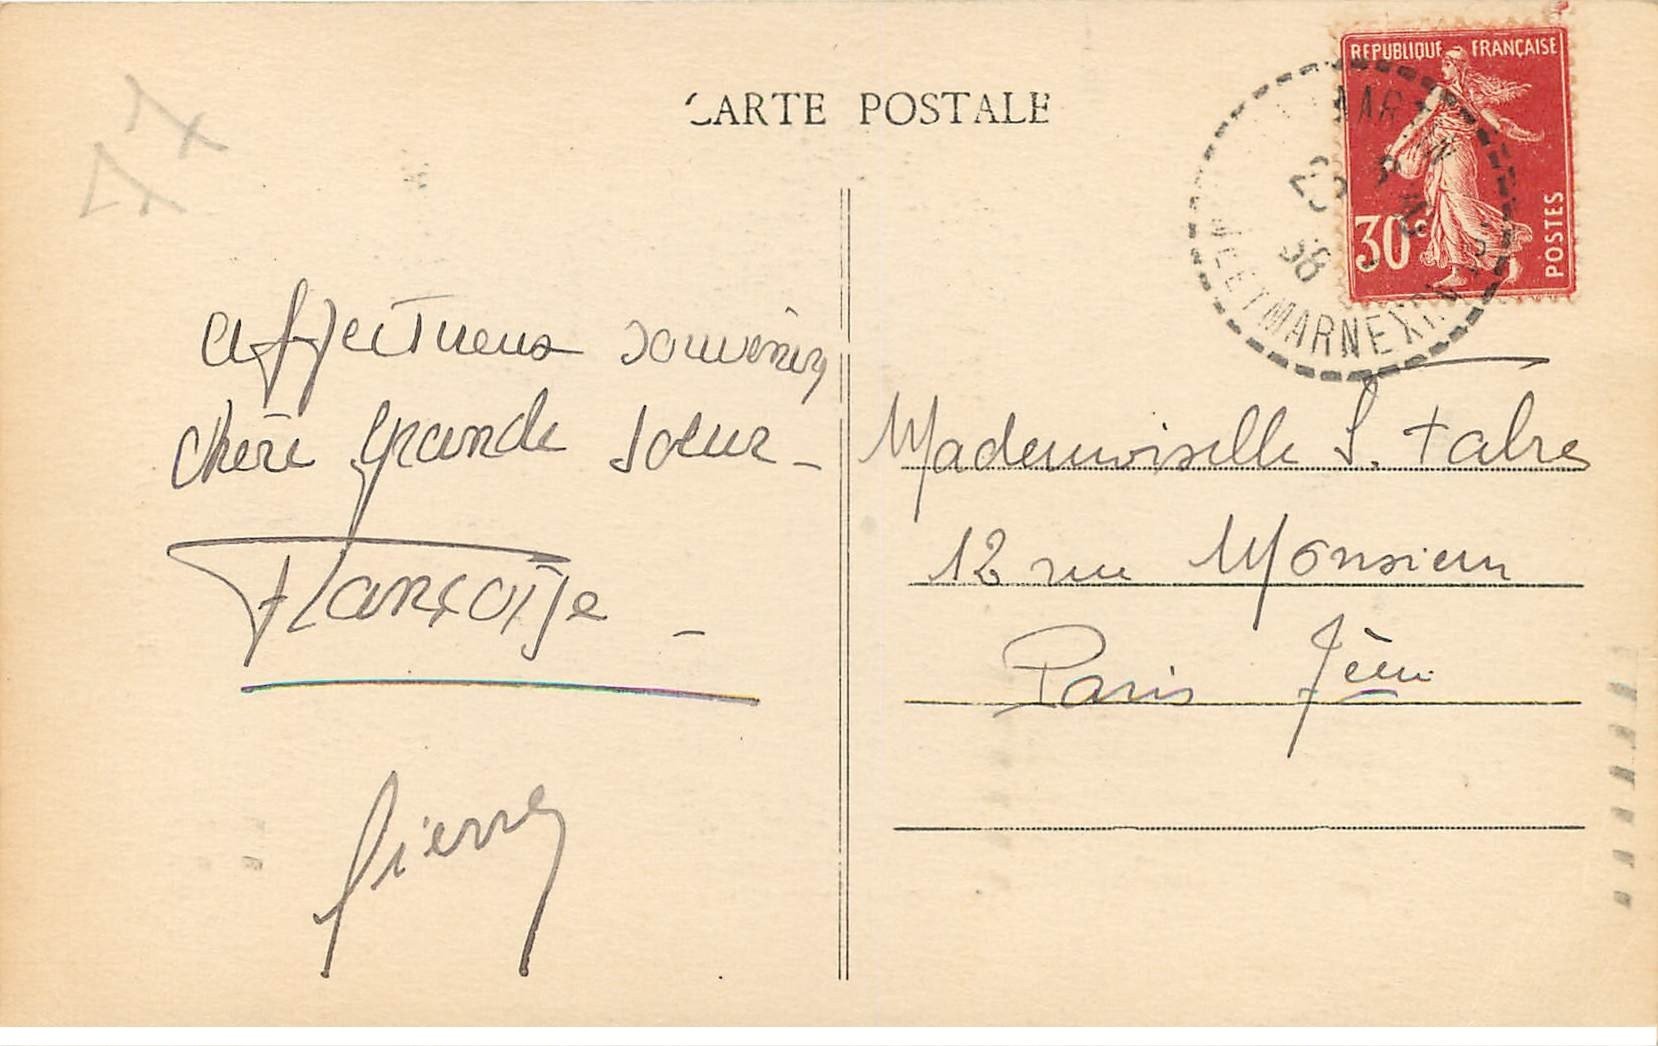 CARTE POSTALE
REPUBLIQUE FRANÇAISE
30c
POSTES
38
affectueux souvenir
chère grande soeur -
Françoise -
Pierre
Mademoiselle S. Fabre
12 rue Monsieur
Paris 7ème